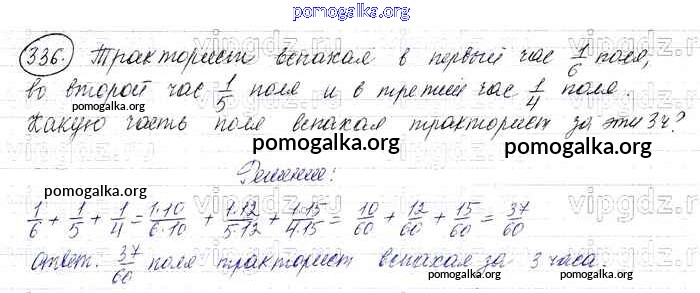 pomogalka.org
336. Тракторист вспахал в первый час 1/6 поля,
во второй час 1/5 поля и в третий час 1/4 поля.
pomogalka.org pomogalka.org
Какую часть поля вспахал тракторист за эти 3ч?
pomogalka.org pomogalka.org
Решение:
pomogalka.org
vipgdz.ru
1/6 + 1/5 + 1/4 = 1·10/6·10 + 1·12/5·12 + 1·15/4·15 = 10/60 + 12/60 + 15/60 = 37/60
Ответ: 37/60 поля тракторист вспахал за 3 часа.
pomogalka.org pomogalka.org